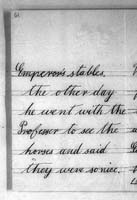 Emperor's stables.
the other day
he went with the
Professor to see the
horses and said
"they were so nice,